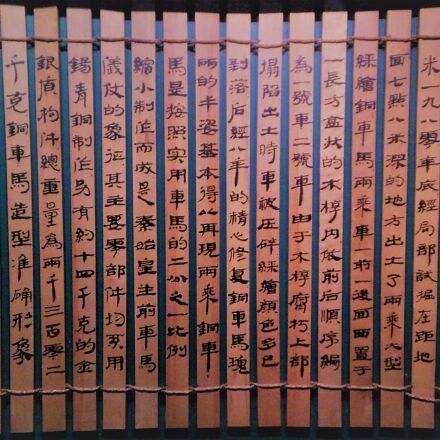 米一九八零年底經局部試掘在距地
面七點八米深的地方出土了兩乘大型
綵繪銅車馬兩乘車一前一後面西置于
一長方盒狀的木椁内依前后順序編
為一號車二號車由于木椁腐朽上部
塌陷出土時車被压碎綵繪顏色多已
剝落后經八年的精心修复銅車馬瑰
丽的丰姿基本得以再現兩乘銅車
馬是按照实用車馬的二分之一比例
縮小制作而成是秦始皇生前車馬
儀仗的象征其主要零部件均采用
錫青銅制作另有約十四千克的金
銀构件總重量為兩千三百零二
千克銅車馬造型准确形象